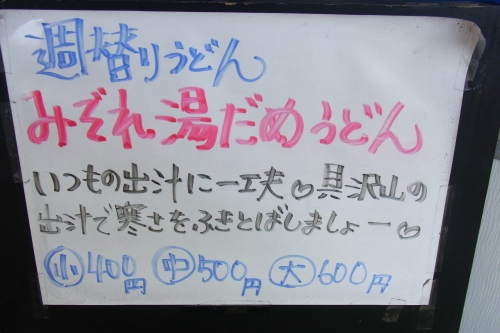 週替りうどん
みぞれ湯だめうどん
いつもの出汁に一工夫♡具沢山の
出汁で寒さをふきとばしましょー♡
小400円 中500円 大600円